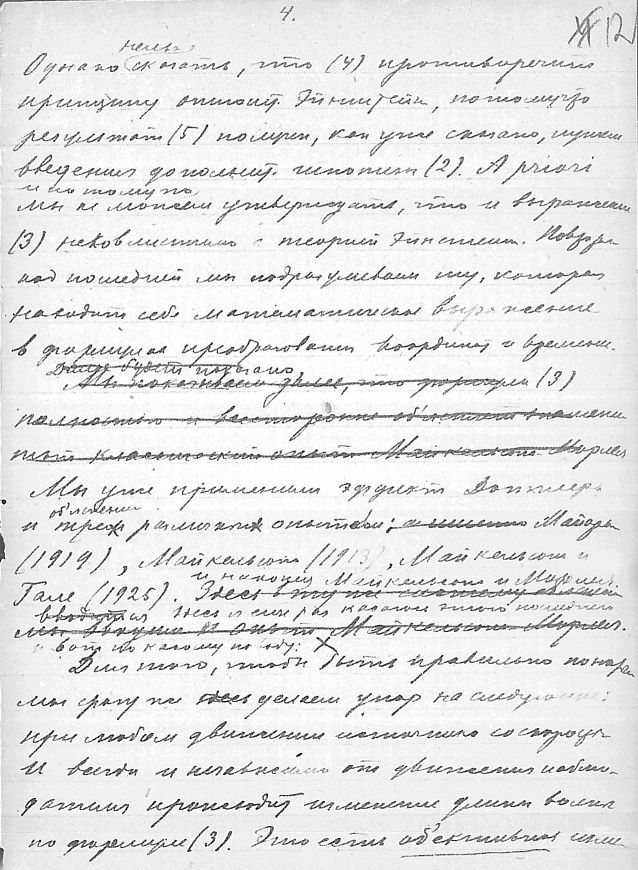 4.
12
нельзя
Однако сказать, что (4) противоречит
принципу относит. Эйнштейна, потому что
результат (5) получен, как уже сказано, путем
введения дополнит. гипотезы (2). A priori
и потому
мы не можем утверждать, что и выражение
(3) несовместимо с теорией Эйнштейна.
под последней мы подразумеваем ту, которая
находит себе математическое выражение
в формулах преобразования координат и времени.
Далее будет показано
Мы покажем далее, что формула (3)
полностью и всесторонне объясняет знамени-
тый классический опыт Майкельсона-Морлея
Мы уже применили эффект Допплера
объяснении
и трех различных опытов; а именно Майорана
(1919), Майкельсона (1913), Майкельсона и
и наконец Майкельсона и Морлея.
Гале (1925). Здесь в эту систему
здесь
мы и опыт Майкельсона-Морлея.
и вот по какому поводу:
Для того, чтобы быть правильно понятым
мы сразу же здесь делаем упор на следующее:
при любом движении источника со скоростью
и всегда и независимо от движения наблю-
дателя происходит изменение длины волны
по формуле (3). Это есть объективное